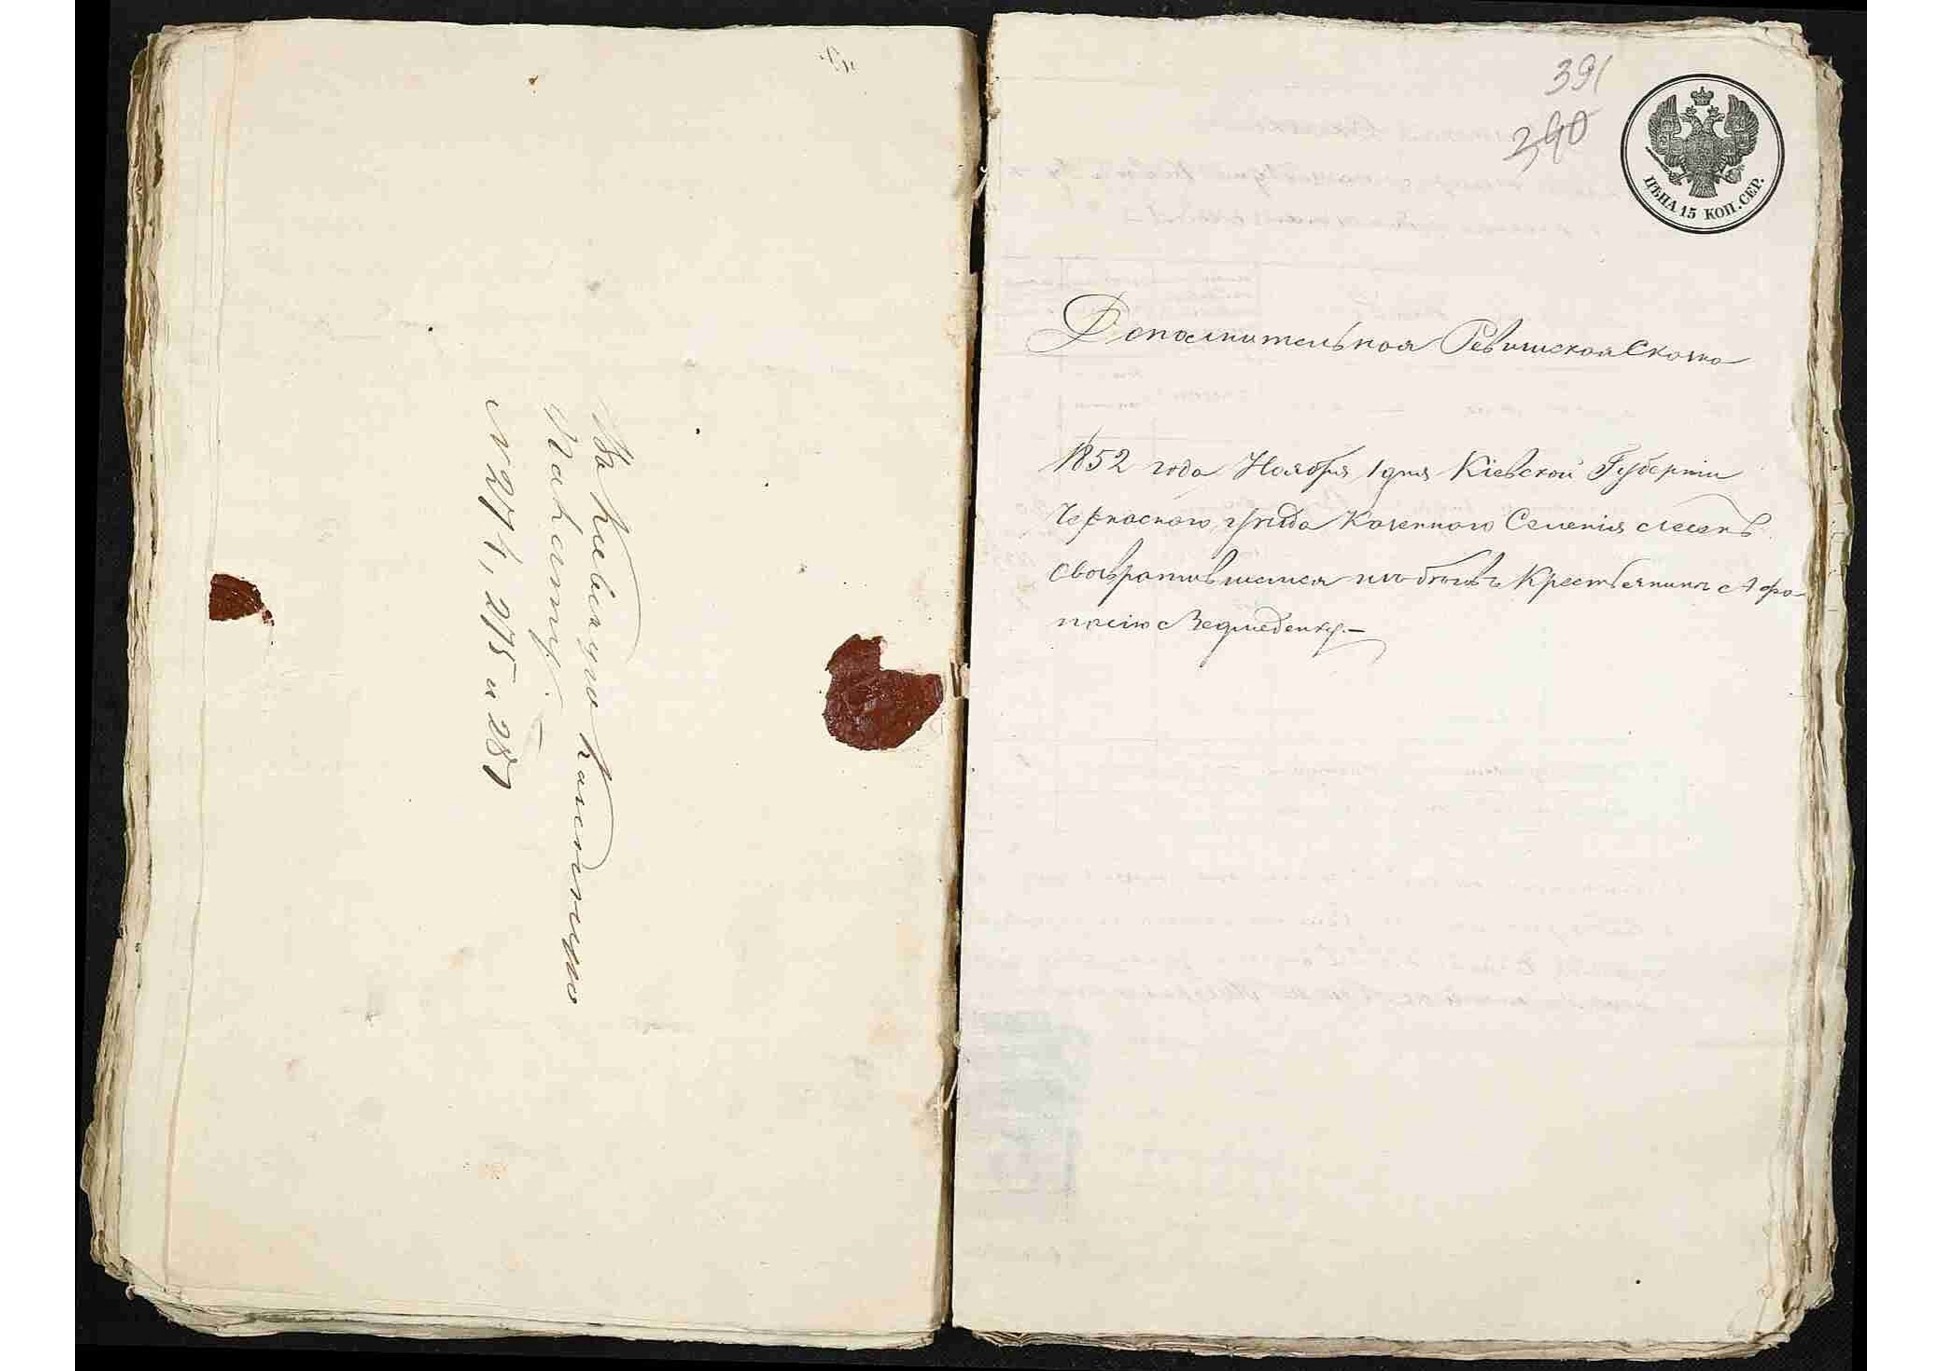 Въ Кіевскую Казенную
Палату.
№ 274, 275 и 287
391
390
ЦѢНА 15 КОП. СЕР.
Дополнительная Ревизская Сказка
1852 года Ноября 1 дня Кіевской Губерніи
Черкаского уѣзда Казенного Селенія
возвратившемся изъ бѣговъ Крестьянинѣ Афа-
насію Ведмеденку.—